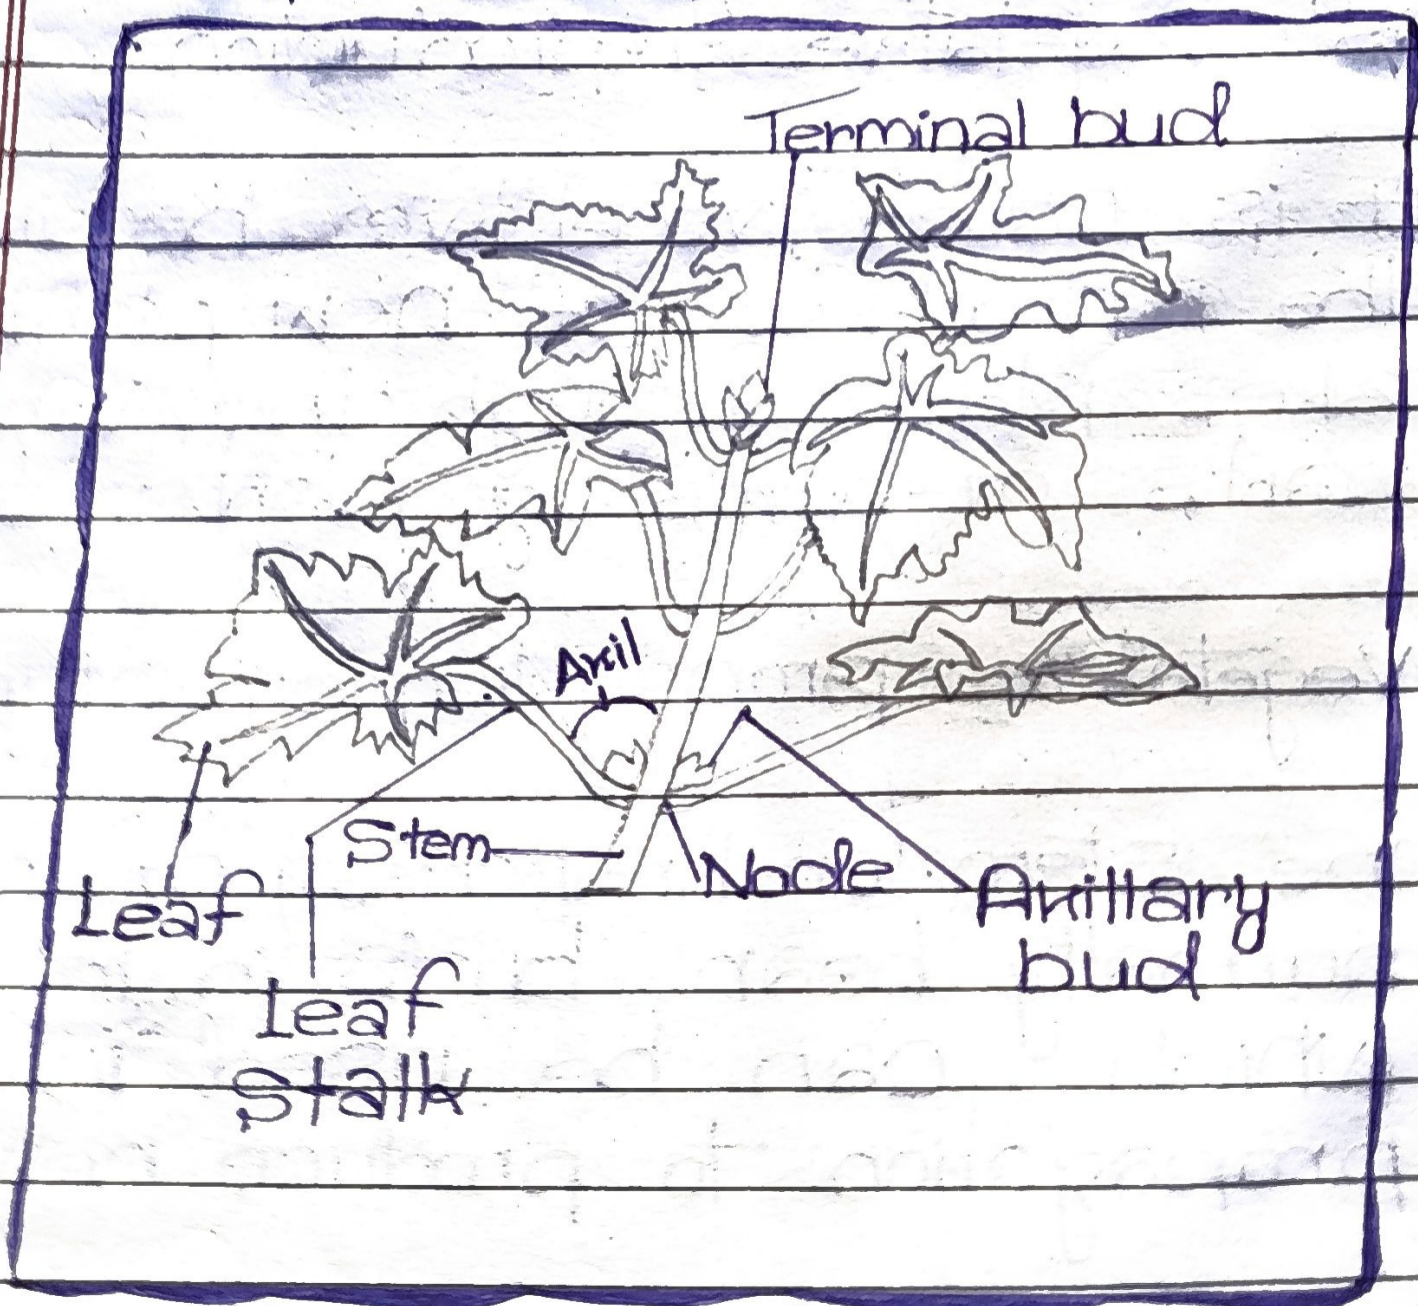 Terminal bud
Axil
Stem
Node
Leaf
Axillary
bud
Leaf
Stalk